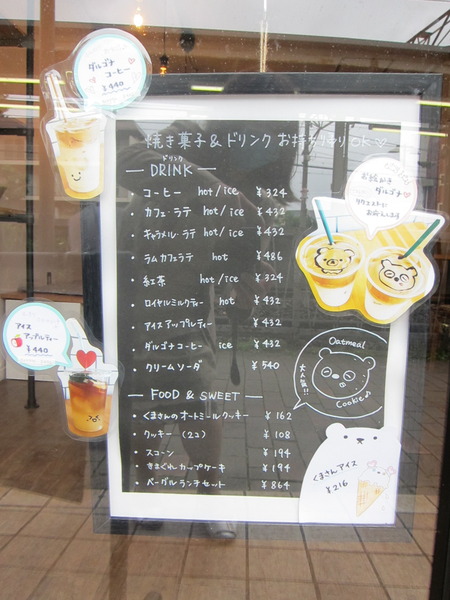 ダルゴナ
コーヒー
¥440
焼き菓子&ドリンク お持ち帰りOK
ドリンク
DRINK
コーヒー hot/ice ¥324
・カフェ・ラテ hot/ice ¥432
・キャラメル・ラテ hot/ice ¥432
・ラムカフェラテ hot ¥486
紅茶 hot/ice ¥324
・ロイヤルミルクティー hot ¥432
・アイスアップルティー ¥432
・ダルゴナコーヒー ice ¥432
・クリームソーダ ¥540
FOOD & SWEET
・くまさんのオートミールクッキー ¥162
・クッキー (2コ) ¥108
・スコーン ¥194
・きまぐれカップケーキ ¥194
・ベーグルランチセット ¥864
お絵かき
ダルゴナ
リクエストに
お応えします
アイス
アップルティー
¥440
Oatmeal
大人気!!
Cookie
くまさんアイス
¥216